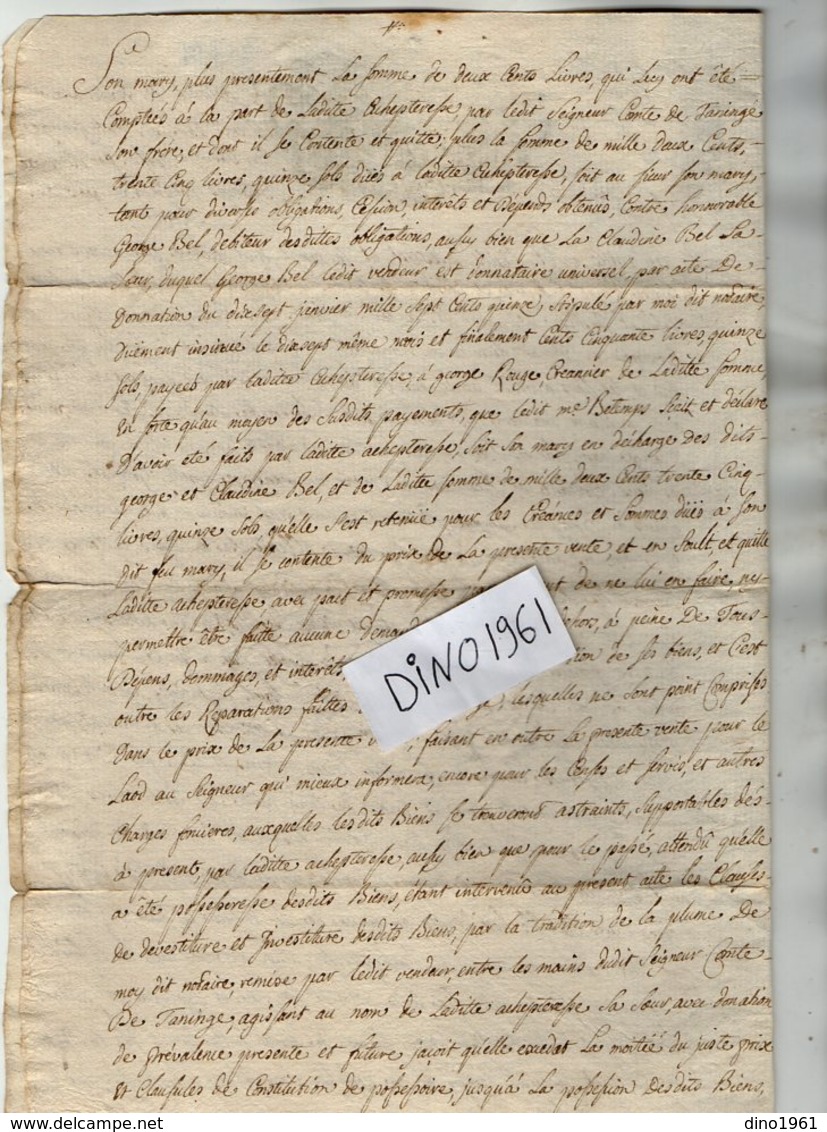 Son mary, plus presentement La somme de deux Cents Livres, qui Luy ont été
Comptées à la part de Laditte achepteresse, par ledit Seigneur Conte de Taninge
son frere, et dont il se Contente et quitte; plus la somme de mille deux Cents,
trente Cinq livres, quinze sols dües à laditte achepteresse, soit au sieur son mary,
tant pour diverse obligations, Cession, interêts et Dépends obtenus, Contre honnorable
George Bel, debiteur desdittes obligations, aussy bien que La Claudine Bel Sa
Sœur, duquel George Bel ledit vendeur est donnataire universel, par acte De
Donnation du dixsept janvier mille sept Cents quinze, stipulé par moi dit notaire,
Düement insinué le dixsept même mois et finalement Cents Cinquante livres, quinze
sols, payées par laditte achepteresse, à george Rouge, Creancier de Laditte somme,
En sorte qu'au moyen des susdits payements, que ledit me Betemps sçait et déclare
D'avoir été faits par laditte achepteresse, soit Son mary en décharge des dits
george et Claudine Bel, et de Laditte somme de mille deux Cents trente Cinq
livres, quinze sols, qu'elle s'est retenüe pour les Créances et sommes düës à son
Dit feu mary, il se contente du prix de La presente vente, et en soult, et quitte
Laditte achepteresse avec pact et promesse de ne lui en faire, ny
permettre être faitte aucune dehors, à peine De Tous
Dépens, dommages, et interêts, de ses biens, et C'est
outre les Reparations faittes lesquelles ne sont point Comprises
Dans le prix de La presente faisant en outre La presente vente pour le
Laod au Seigneur qui mieux informera, encore pour les Censes et servis, et autres
Charges foncieres, auxquelles lesdits Biens se trouveront astraints, supportables dés
à present, par laditte achepteresse, aussy bien que pour le passé, attendû qu'elle
a été possesseresse desdits Biens, étant intervenüs au present acte les Clauses
de devestiture et Investiture desdits Biens, par la tradition de la plume De
moy dit notaire, remise par ledit vendeur entre les mains dudit Seigneur Conte
De Taninge, agissant au nom de Laditte achepteresse Sa Sœur, avec donation
de prévalence presente et future jaçoit qu'elle excedat La moitée du juste prix
et Clausules de Constitution de possessoire, jusqu'à La possession Desdits Biens,
DiNO1961
dino1961